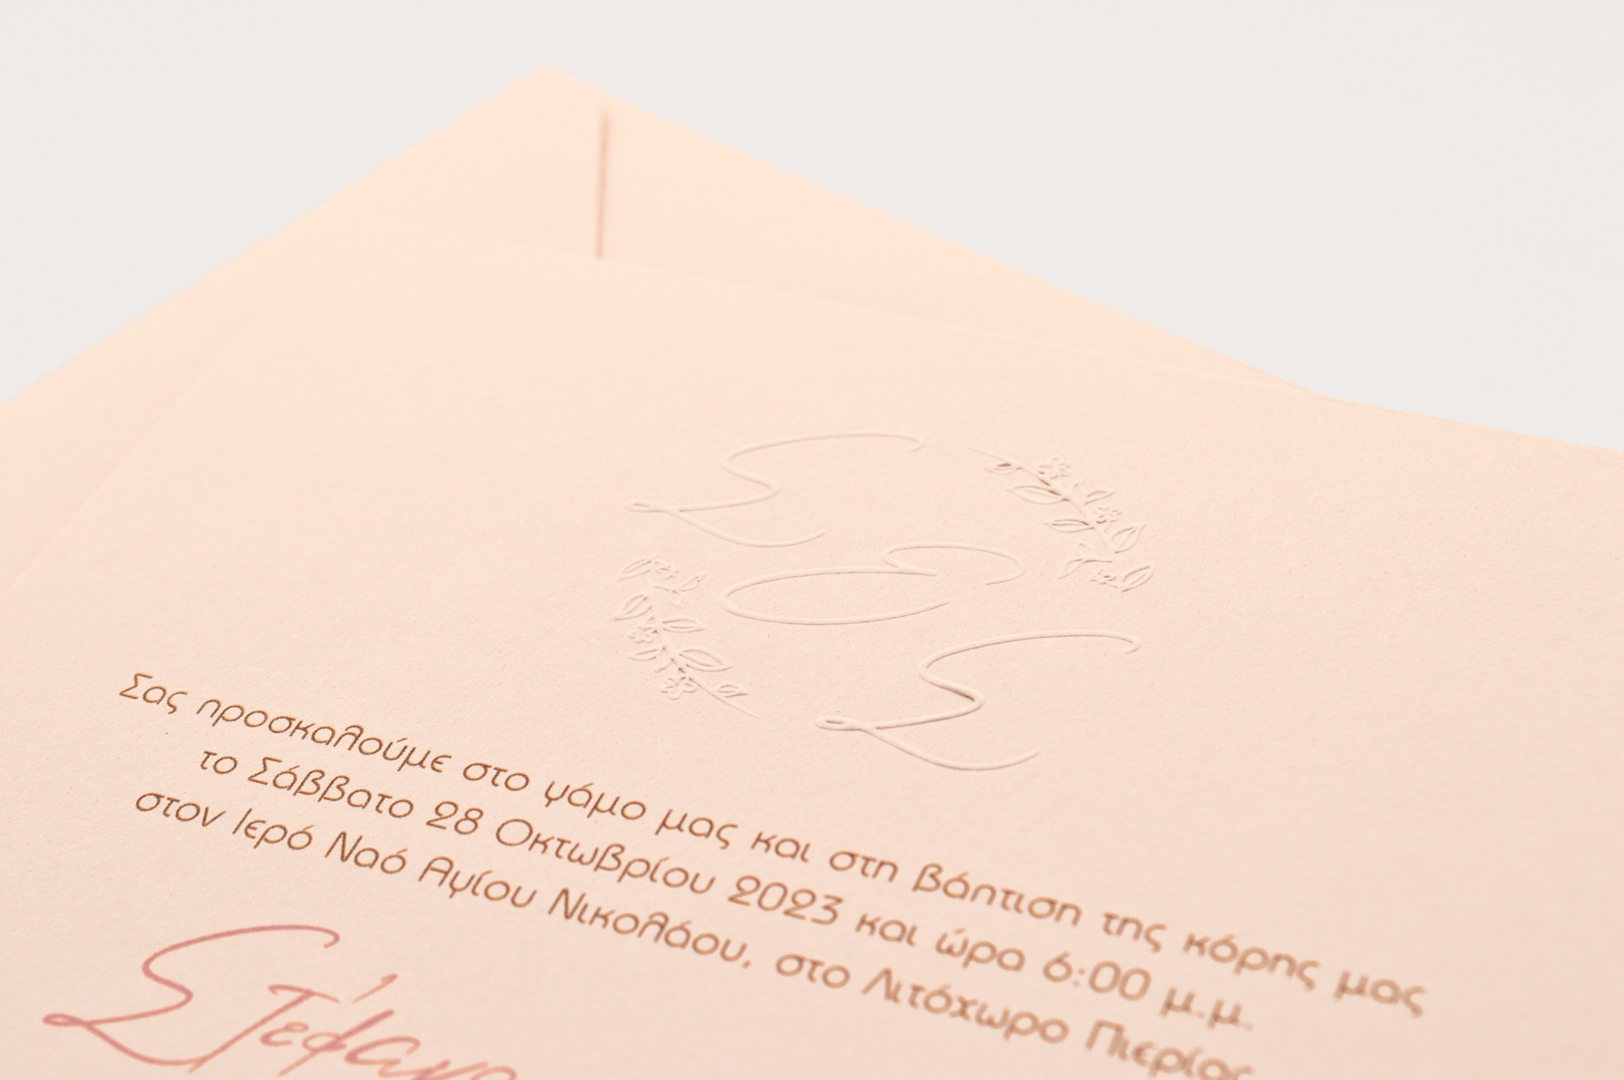 Σ
Ε
Σ
Σας προσκαλούμε στο γάμο μας και στη βάπτιση της κόρης μας
το Σάββατο 28 Οκτωβρίου 2023 και ώρα 6:00 μ.μ.
στον Ιερό Ναό Αγίου Νικολάου, στο Λιτόχωρο Πιερίας